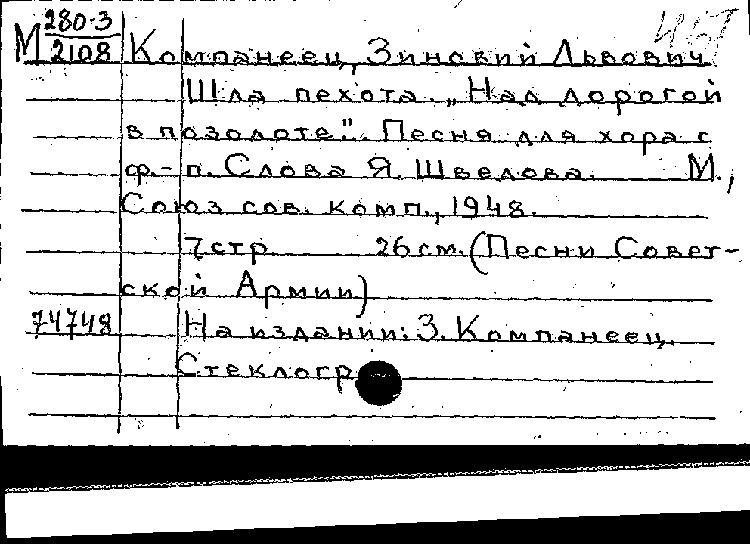 М 280-3
2108 Компанеец, Зиновий Львович
Шла пехота. „Над дорогой
в позолоте". Песня для хора с
ф.-п. Слова Я. Шведова. М.,
Союз сов. комп., 1948.
7 стр. 26 см. (Песни Совет-
ской Армии)
74748 На издании: З. Компанеец.
Стеклогр.